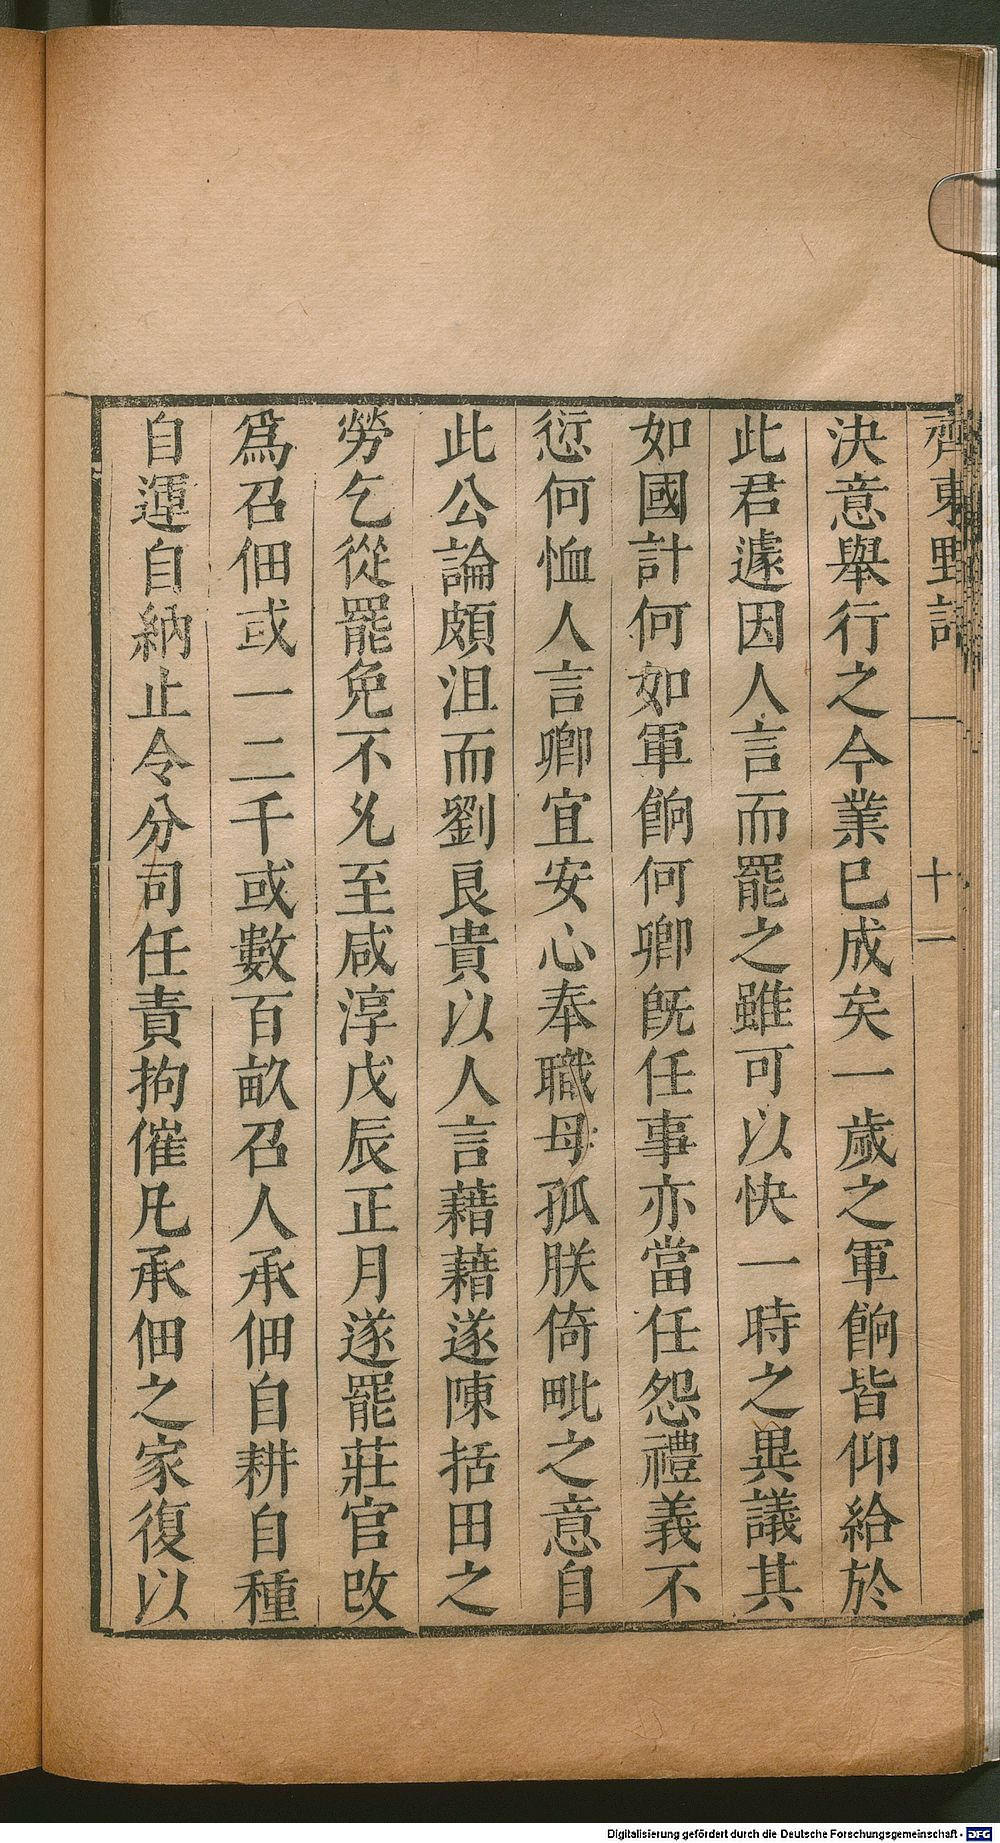 齊東野語 十一
決意舉行之今業已成矣一歲之軍餉皆仰給於
此君遽因人言而罷之雖可以快一時之異議其
如國計何如軍餉何卿既任事亦當任怨禮義不
愆何恤人言卿宜安心奉職毋孤朕倚毗之意自
此公論頗沮而劉良貴以人言藉藉遂陳括田之
勞乞從罷免不允至咸淳戊辰正月遂罷莊官改
爲召佃或一二千或數百畝召人承佃自耕自種
自運自納止令分司任責拘催凡承佃之家復以
Digitalisierung gefördert durch die Deutsche Forschungsgemeinschaft - DFG